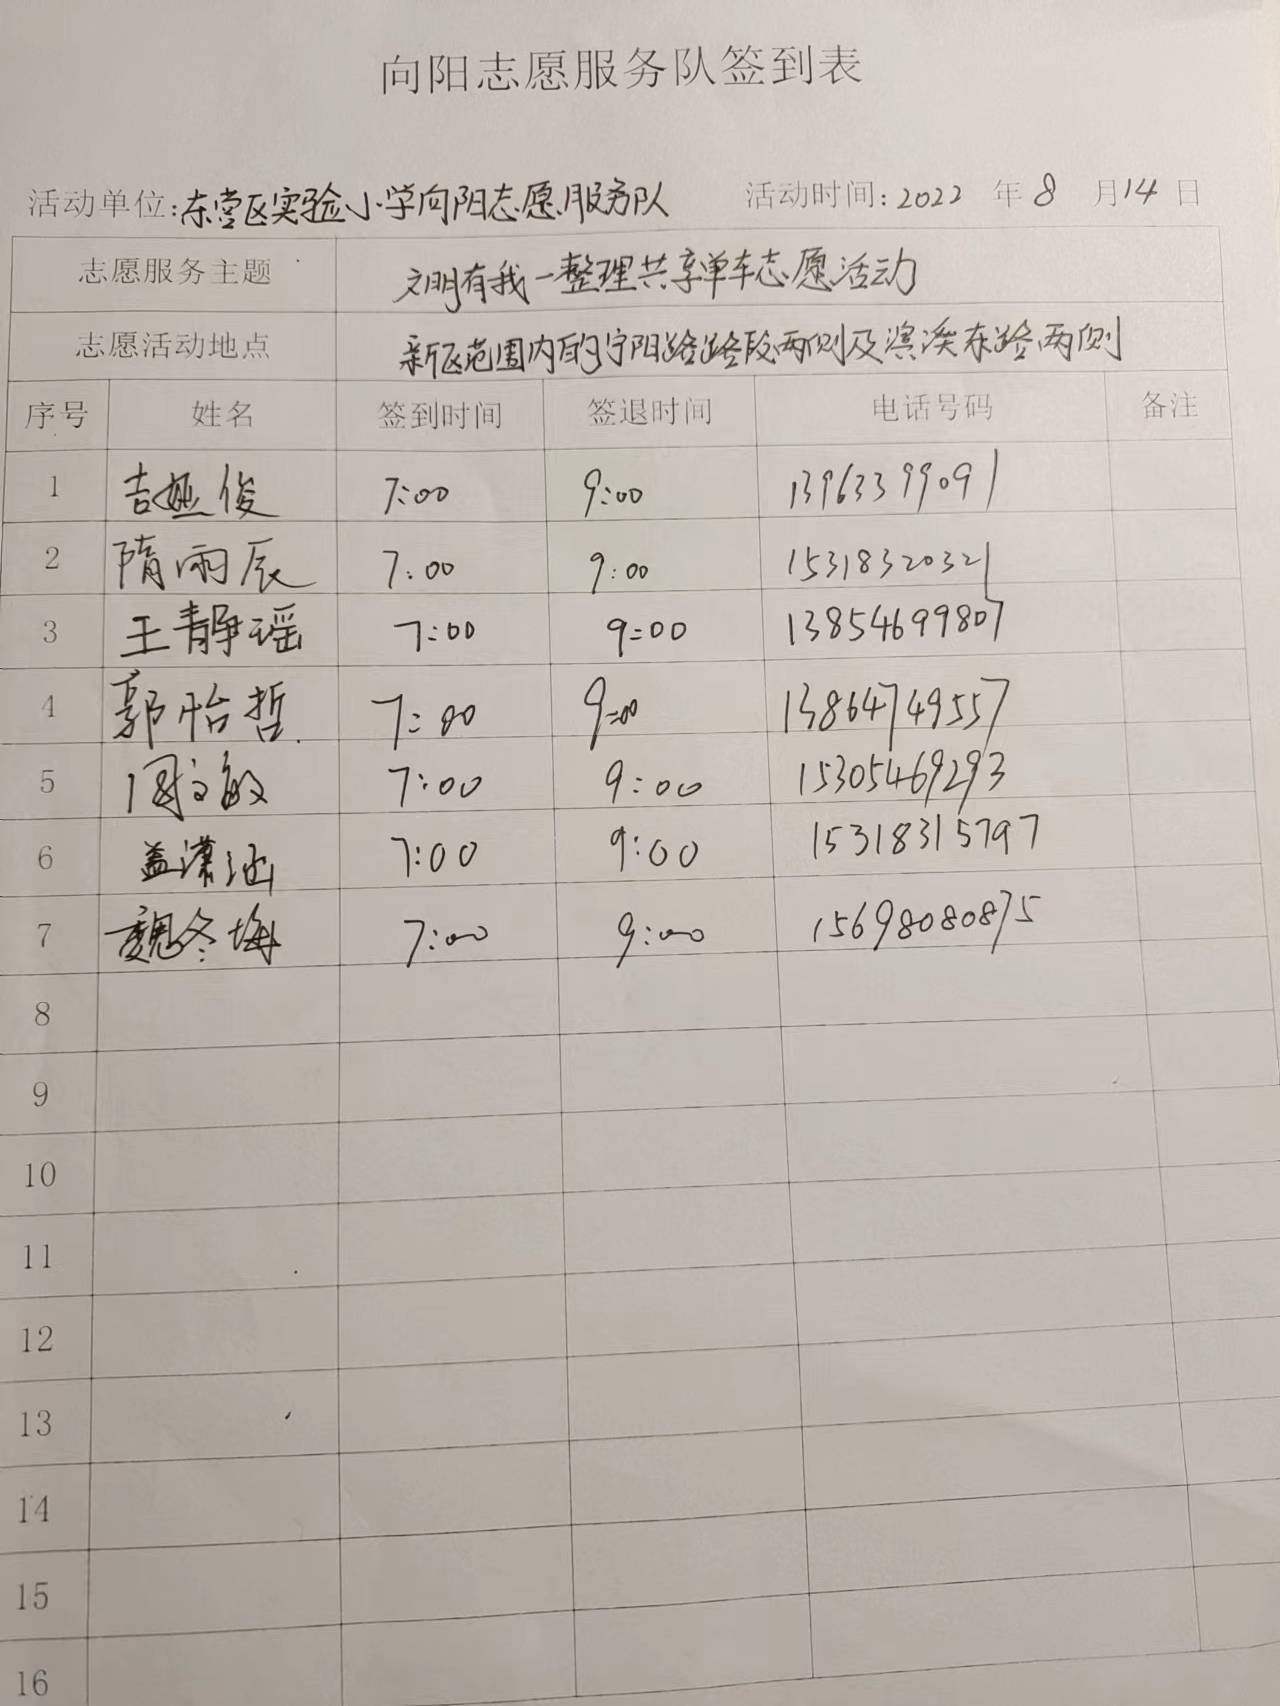 向阳志愿服务队签到表
活动单位:东营区实验小学向阳志愿服务队 活动时间:2022 年 8 月 14 日
志愿服务主题 文明有我一整理共享单车志愿活动
志愿活动地点 新区范围内的宁阳路路段两侧及滨溪东路两侧
序号 姓名 签到时间 签退时间 电话号码 备注
1 吉娅俊 7:00 9:00 13963399091
2 隋雨辰 7:00 9:00 15318320321
3 王静瑶 7:00 9:00 13854699807
4 郭怡哲 7:00 9:00 13864749557
5 周文敏 7:00 9:00 15305469293
6 盖潇涵 7:00 9:00 15318315797
7 魏冬梅 7:00 9:00 15698080875
8
9
10
11
12
13
14
15
16